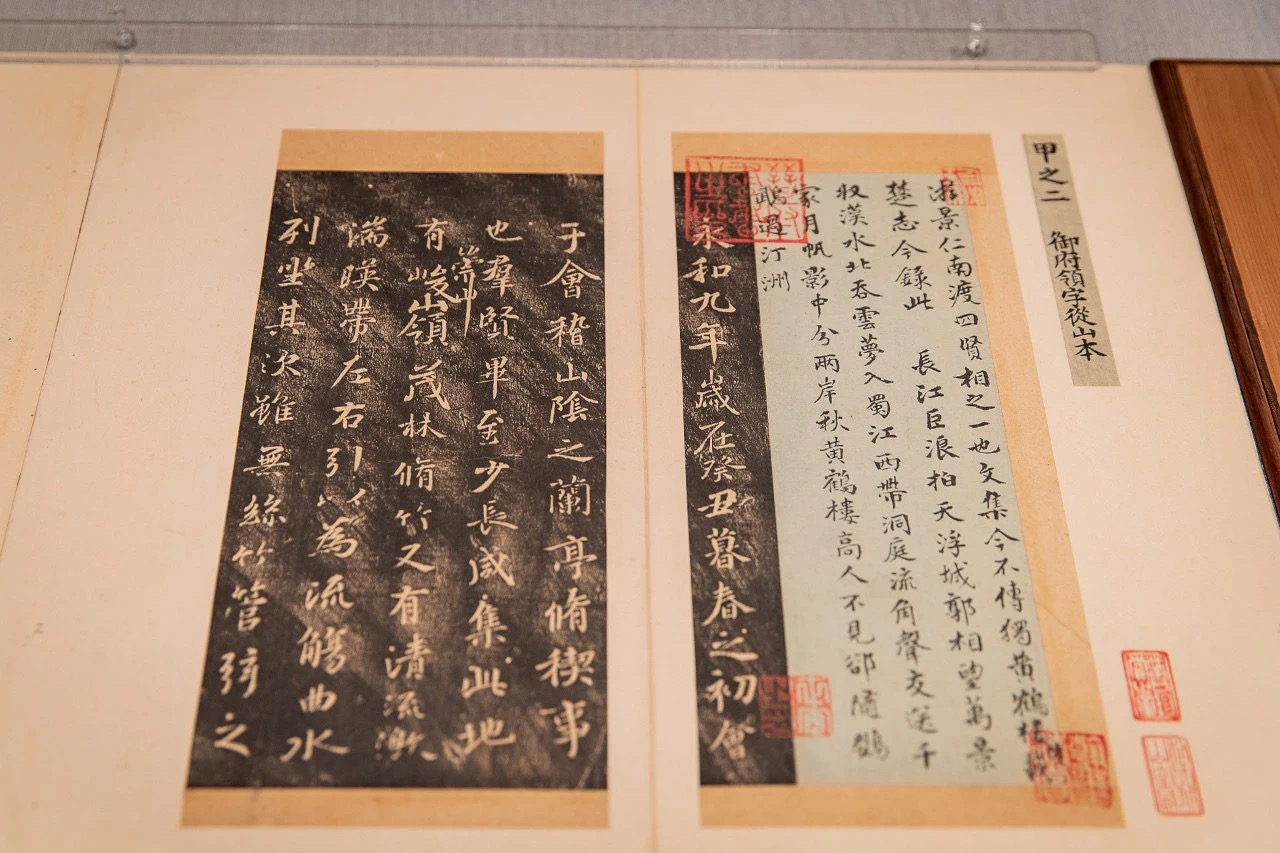 甲之二　御府領字從山本
游景仁南渡四賢相之一也文集今不傳獨黃鶴樓
楚志今錄此　長江巨浪拍天浮城郭相望萬景
収漢水北吞雲夢入蜀江西帶洞庭流角聲交送千
家月帆影中分兩岸秋黃鶴樓高人不見卻隨鸚
鵡過汀洲
永和九年歲在癸丑暮春之初會
于會稽山陰之蘭亭脩稧事
也羣賢畢至少長咸集此地
有崇山峻嶺茂林脩竹又有清流激
湍暎帶左右引以為流觴曲水
列坐其次雖無絲竹管弦之